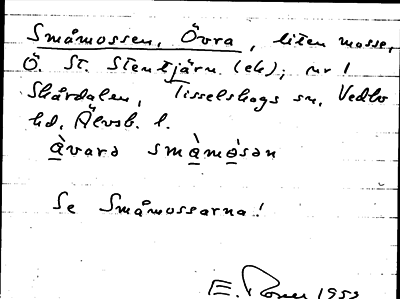 Småmossen, Övra, liten mosse,
Ö. St. Stentjärn (ek); nr 1
Skårdalen, Tisselskogs sn, Vedbo
hd, Älvsb. l.
àvara smàmòsan
Se Småmossarna!
E. 1952